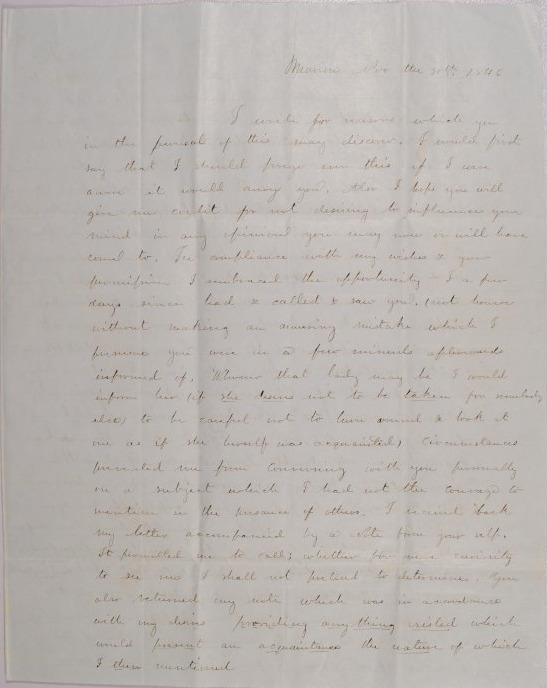 Nov the 20th 1846
I write for reasons which you
in the perusal of this may discover. I would first
say that I should forego even this if I were
aware it would annoy you. Also I hope you will
give me credit for not desiring to influence your
mind in any opinions you may now or will have
come to. In compliance with my wishes & your
permission I embraced the opportunity I a few
days since had & called & saw you, (not however
without making an amusing mistake which I
presume you were in a few minutes afterwards
informed of. Whoever that lady may be I would
inform her (if she desires not to be taken for somebody
else) to be careful not to turn round & look at
one as if she herself was acquainted) Circumstances
prevented me from conversing with you personally
on a subject which I had not the courage to
mention in the presence of others. I received back
my letter accompanied by a note from your self.
It permitted me to call; whether from mere curiosity
to see me I shall not pretend to determine. You
also returned my note which was in accordance
with my desires providing anything existed which
would prevent an acquaintance the nature of which
I then mentioned